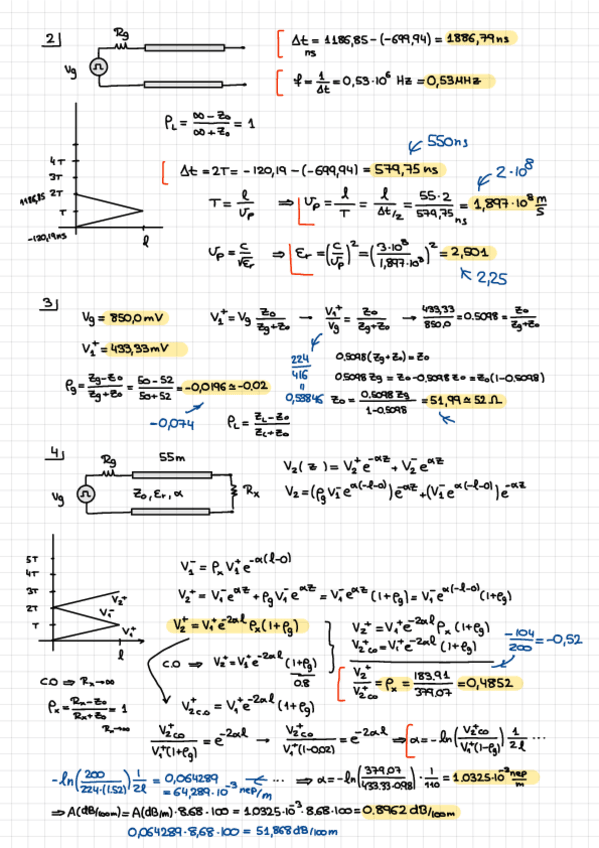 2|
Rg
Vg
Δt = 1186,85 - (-699,94) = 1886,79 ns
ns
f = 1/Δt = 0,53·10⁶ Hz = 0,53MHz
ρL = (∞ - Z₀)/(∞ + Z₀) = 1
4T
3T
1186,85 2T
T
-120,19ns
l
550ns
Δt = 2T = -120,19 - (-699,94) = 579,75 ns
2·10⁸
T = l/Up ⇒ Up = l/T = l/(Δt/2) = 55·2/579,75 ns = 1,897·10⁸ m/s
Up = c/√εr ⇒ εr = (c/Up)² = (3·10⁸/1,897·10⁸)² = 2,501
2,25
3|
Vg = 850,0mV
V₁⁺ = Vg Z₀/(Zg+Z₀) → V₁⁺/Vg = Z₀/(Zg+Z₀) → 433,33/850,0 = 0.5098 = Z₀/(Zg+Z₀)
V₁⁺ = 433,33mV
224/416 = 0,53846
0,5098(Zg+Z₀) = Z₀
ρg = (Zg-Z₀)/(Zg+Z₀) = (50-52)/(50+52) = -0,0196 ≃ -0,02
0.5098 Zg = Z₀ - 0.5098 Z₀ = Z₀(1-0.5098)
-0,074
Z₀ = 0.5098 Zg/(1-0.5098) = 51,99 ≃ 52 Ω
ρL = (ZL-Z₀)/(ZL+Z₀)
4|
Rg
55m
Vg
Z₀, εr, α
Rx
V₂(z) = V₂⁺e^-αz + V₂⁻e^αz
V₂ = (ρg V₁⁻e^α(-l-0))e^-αz + (V₁⁻e^α(-l-0))e^-αz
5T
4T
3T
2T
T
V₂⁺
V₁⁻
V₁⁺
l
V₁⁻ = ρx V₁⁺e^-α(l-0)
V₂⁺ = V₁⁻e^αz + ρg V₁⁻e^αz = V₁⁻e^αz(1+ρg) = V₁⁻e^α(-l-0)(1+ρg)
V₂⁺ = V₁⁺e^-2αl ρx(1+ρg)
V₂⁺ = V₁⁺e^-2αl ρx(1+ρg)
V₂⁺co = V₁⁺e^-2αl (1+ρg)
-104/200 = -0,52
C.O ⇒ V₂⁺ = V₁⁺e^-2αl (1+ρg)
0.8
V₂⁺/V₂⁺co = ρx = 183,91/379,07 = 0,4852
C.O ⇒ Rx→∞
ρx = (Rx-Z₀)/(Rx+Z₀) = 1
Rx→∞
V₂⁺C.O = V₁⁺e^-2αl(1+ρg)
V₂⁺co/V₁⁺(1+ρg) = e^-2αl → V₂⁺co/V₁⁺(1-0.02) = e^-2αl ⇒ α = -ln(V₂⁺co/V₁⁺(1-ρg)) 1/2l ...
-ln(200/224·(1.52)) 1/2l = 0,064289 = 64,289·10⁻³ nep/m ← ... ⇒ α = -ln(379,07/433.33·0.98) · 1/110 = 1.0325·10⁻³ nep/m
⇒ A(dB/100m) = A(dB/m)·8.68·100 = 1.0325·10⁻³·8.68·100 = 0.8962 dB/100m
0,064289·8,68·100 = 51,868 dB/100m